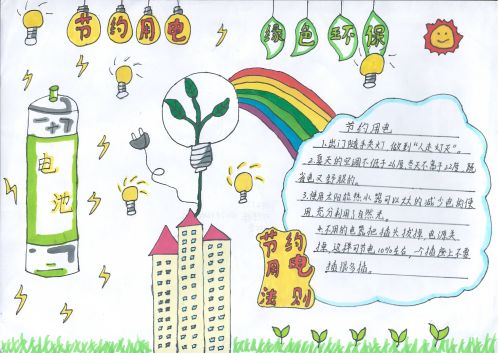 节约用电
绿色环保
电池
节约用电
1.出门随手关灯,做到"人走灯灭"。
2.夏天的空调不低于26度,冬天不高于22度,既
省电又舒服的。
3.使用太阳能热水器可以大大的减少电的使
用,充分利用了自然光。
4.不用的电器把插头拔掉,电源关
掉,这样可节电10%左右,一个插座上不要
插很多插。
节约
用电
法则